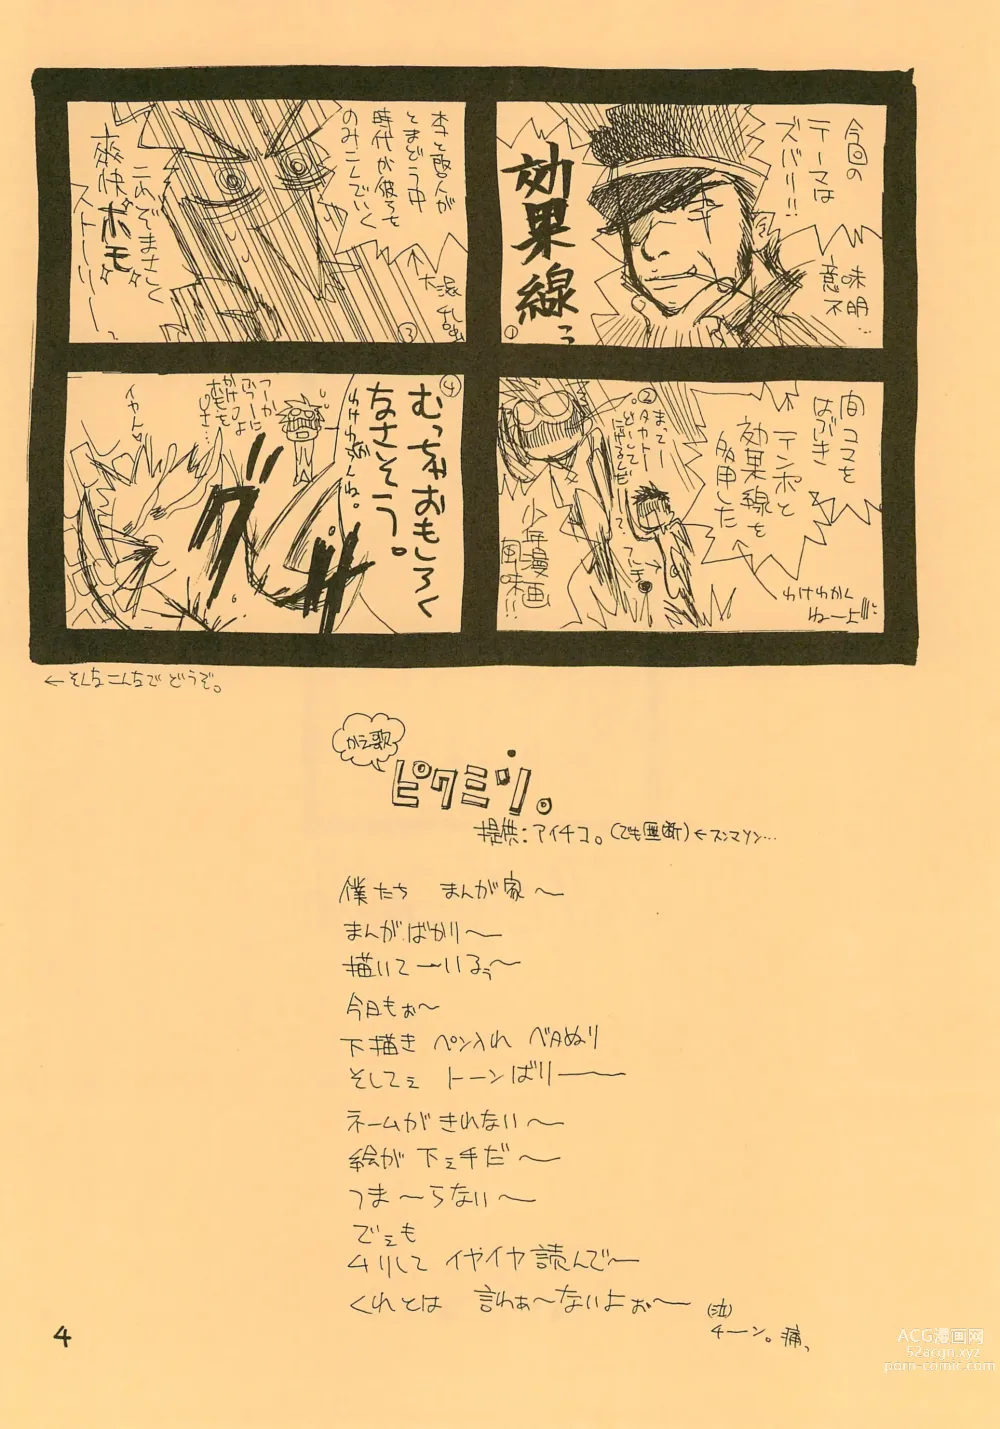 今回の
テーマは
ズバリ!!
効果線っ
意味
不明…
①
間コマを
はぶき
テンポと
効果線を
多用した
わけわかく
ねーよ!!
②
まてー
タカトー
どうして
にげるんだ
少年漫画
風味!!
本って読んが
とまどう中
時代が彼らを
のみこんでいく
大混乱
③
これぞまさしく
爽快ホモ
ストーリーっ
④
むっちゃおもしろく
なさそう。
わけわかんね。
つーか
フツーに
かけっよ
おもても
グサ
イヤん
←そんなこんなで どうぞ。
かえ歌
ピクミン。
提供:アイチコ。(でも無断)←スンマソン…
僕たち まんが家〜
まんがばかり〜
描いて〜いるぅ〜
今日もぉ〜
下描き ペン入れ ベタぬり
そしてぇ トーンばり——
ネームが きれない〜
絵が 下ぇ手だ〜
つま〜らない〜
でぇも
ムリして イヤイヤ読んで〜
くれとは 言わぁ〜ないよぉ〜
(泣)
チーン。痛、
4
ACG漫画网
52acgn.xyz
porn-comic.com